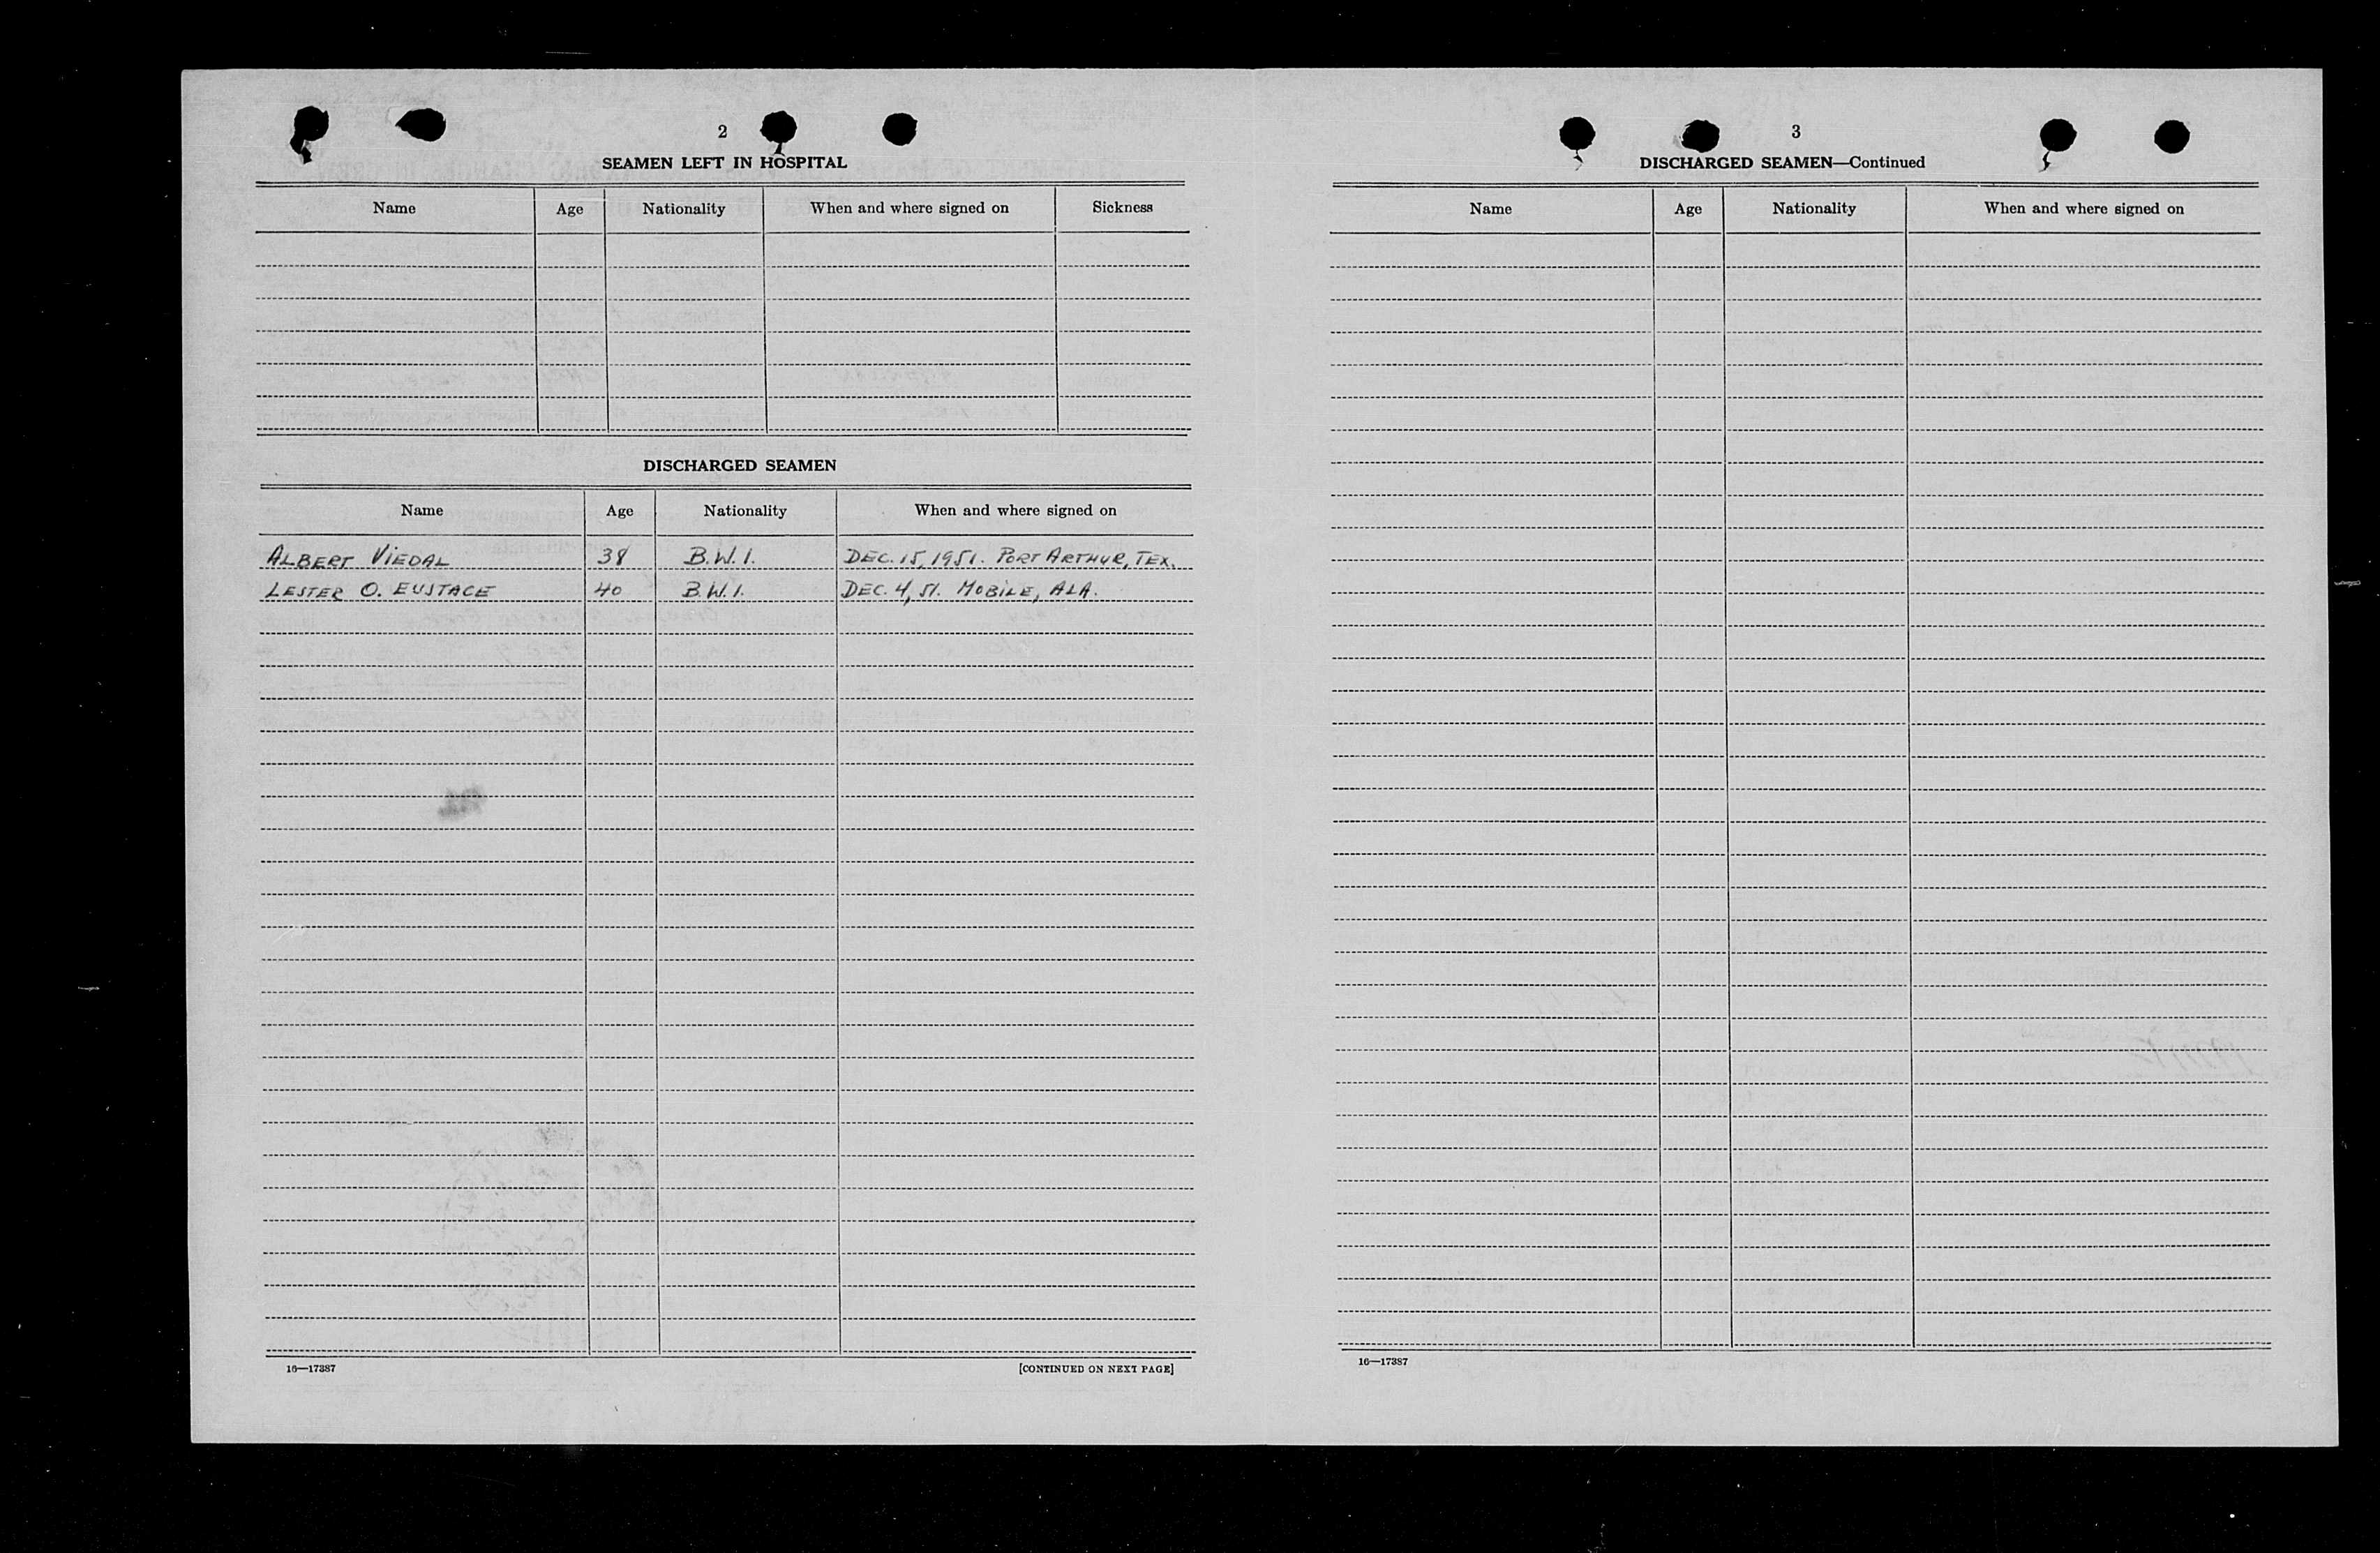 2
SEAMEN LEFT IN HOSPITAL
Name Age Nationality When and where signed on Sickness
DISCHARGED SEAMEN
Name Age Nationality When and where signed on
ALBERT VIEDAL 38 B.W.I. DEC. 15, 1951. PORT ARTHUR, TEX.
LESTER O. EUSTACE 40 B.W.I. DEC. 4, 51. MOBILE, ALA.
16—17387 [CONTINUED ON NEXT PAGE]
3
DISCHARGED SEAMEN—Continued
Name Age Nationality When and where signed on
16—17387